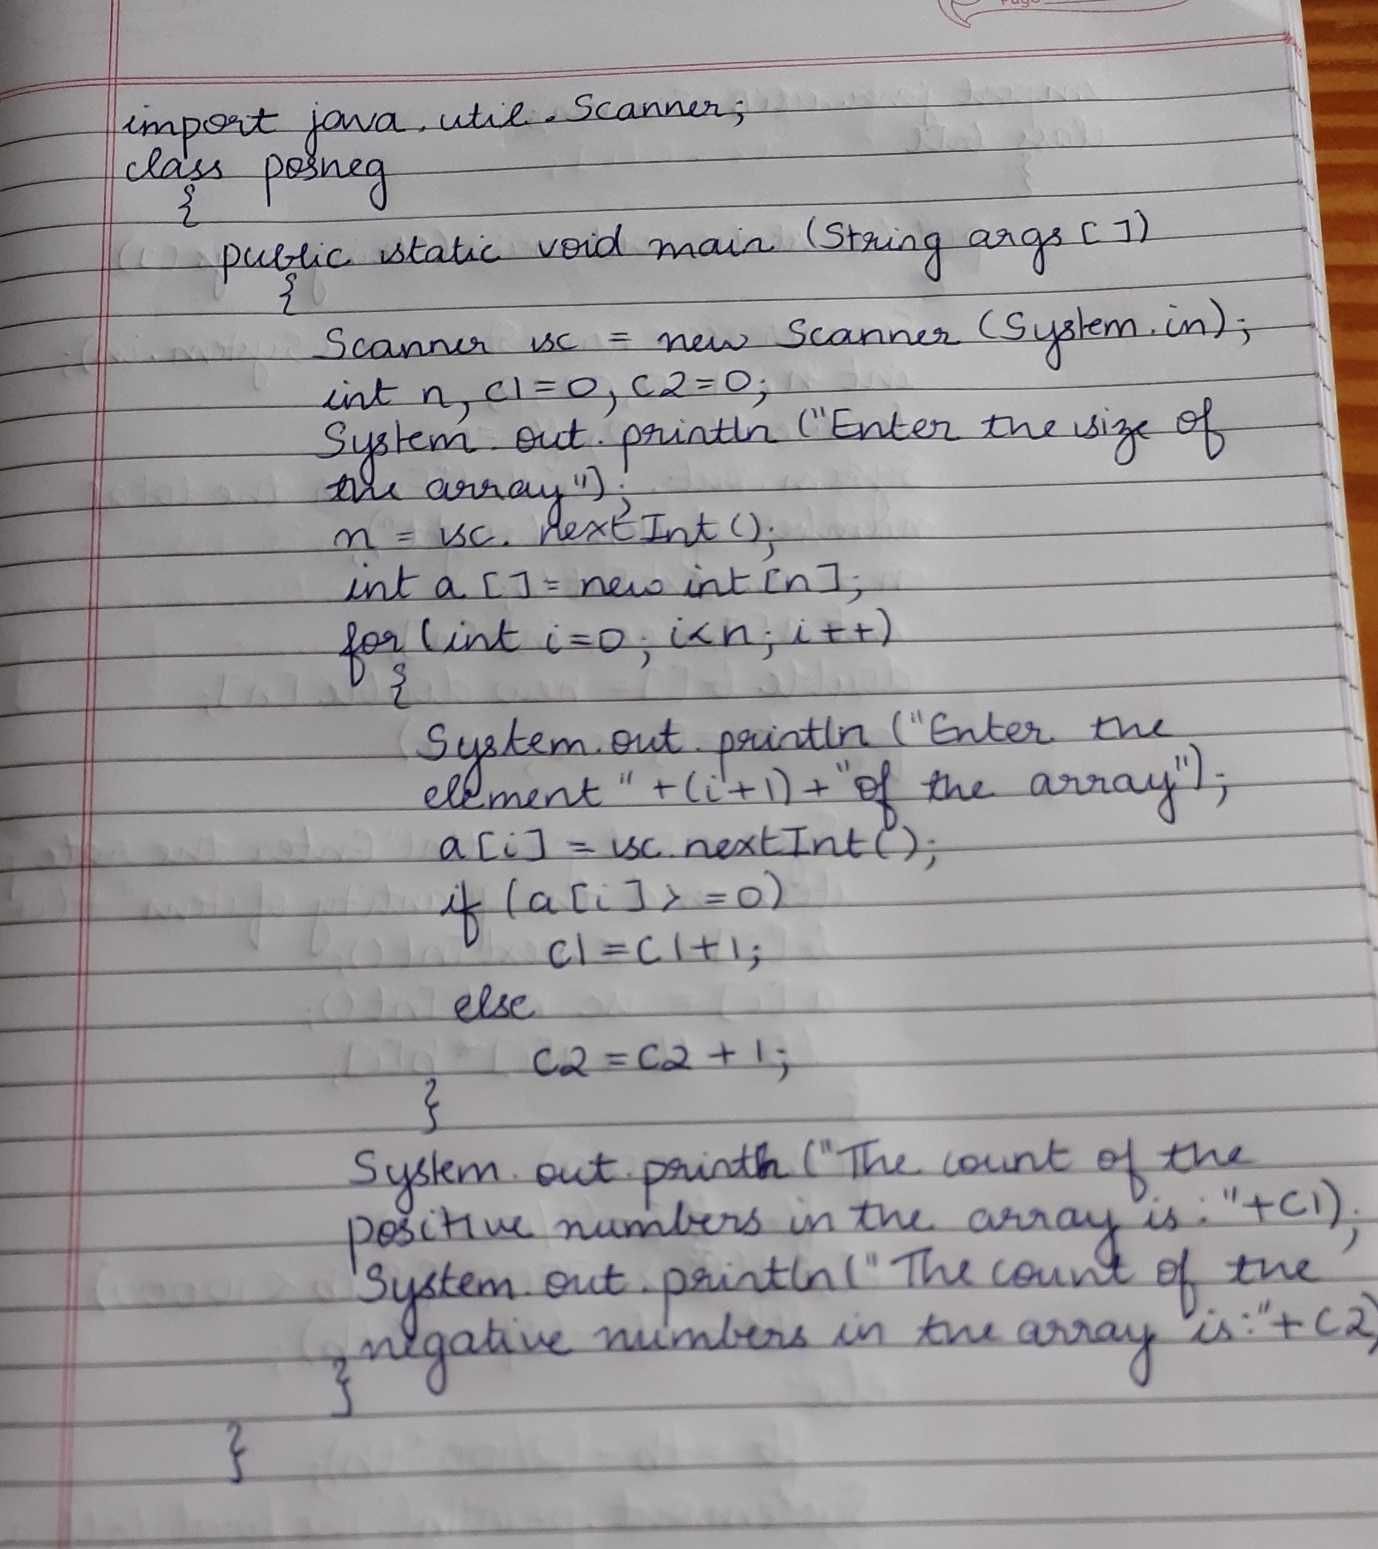 Page
import java.util.Scanner;
class posneg
{
public static void main (String args [])
{
Scanner sc = new Scanner (System.in);
int n, c1=0, c2=0;
System.out.println ("Enter the size of
the array");
n = sc. nextInt ();
int a [] = new int [n];
for (int i=0; i<n; i++)
{
System.out.println ("Enter the
element "+(i+1)+"of the array");
a[i] = sc.nextInt();
if (a[i]>=0)
c1=c1+1;
else
c2=c2+1;
}
System.out.println ("The count of the
positive numbers in the array is:"+c1);
System.out.println("The count of the
negative numbers in the array is:"+c2)
}
}